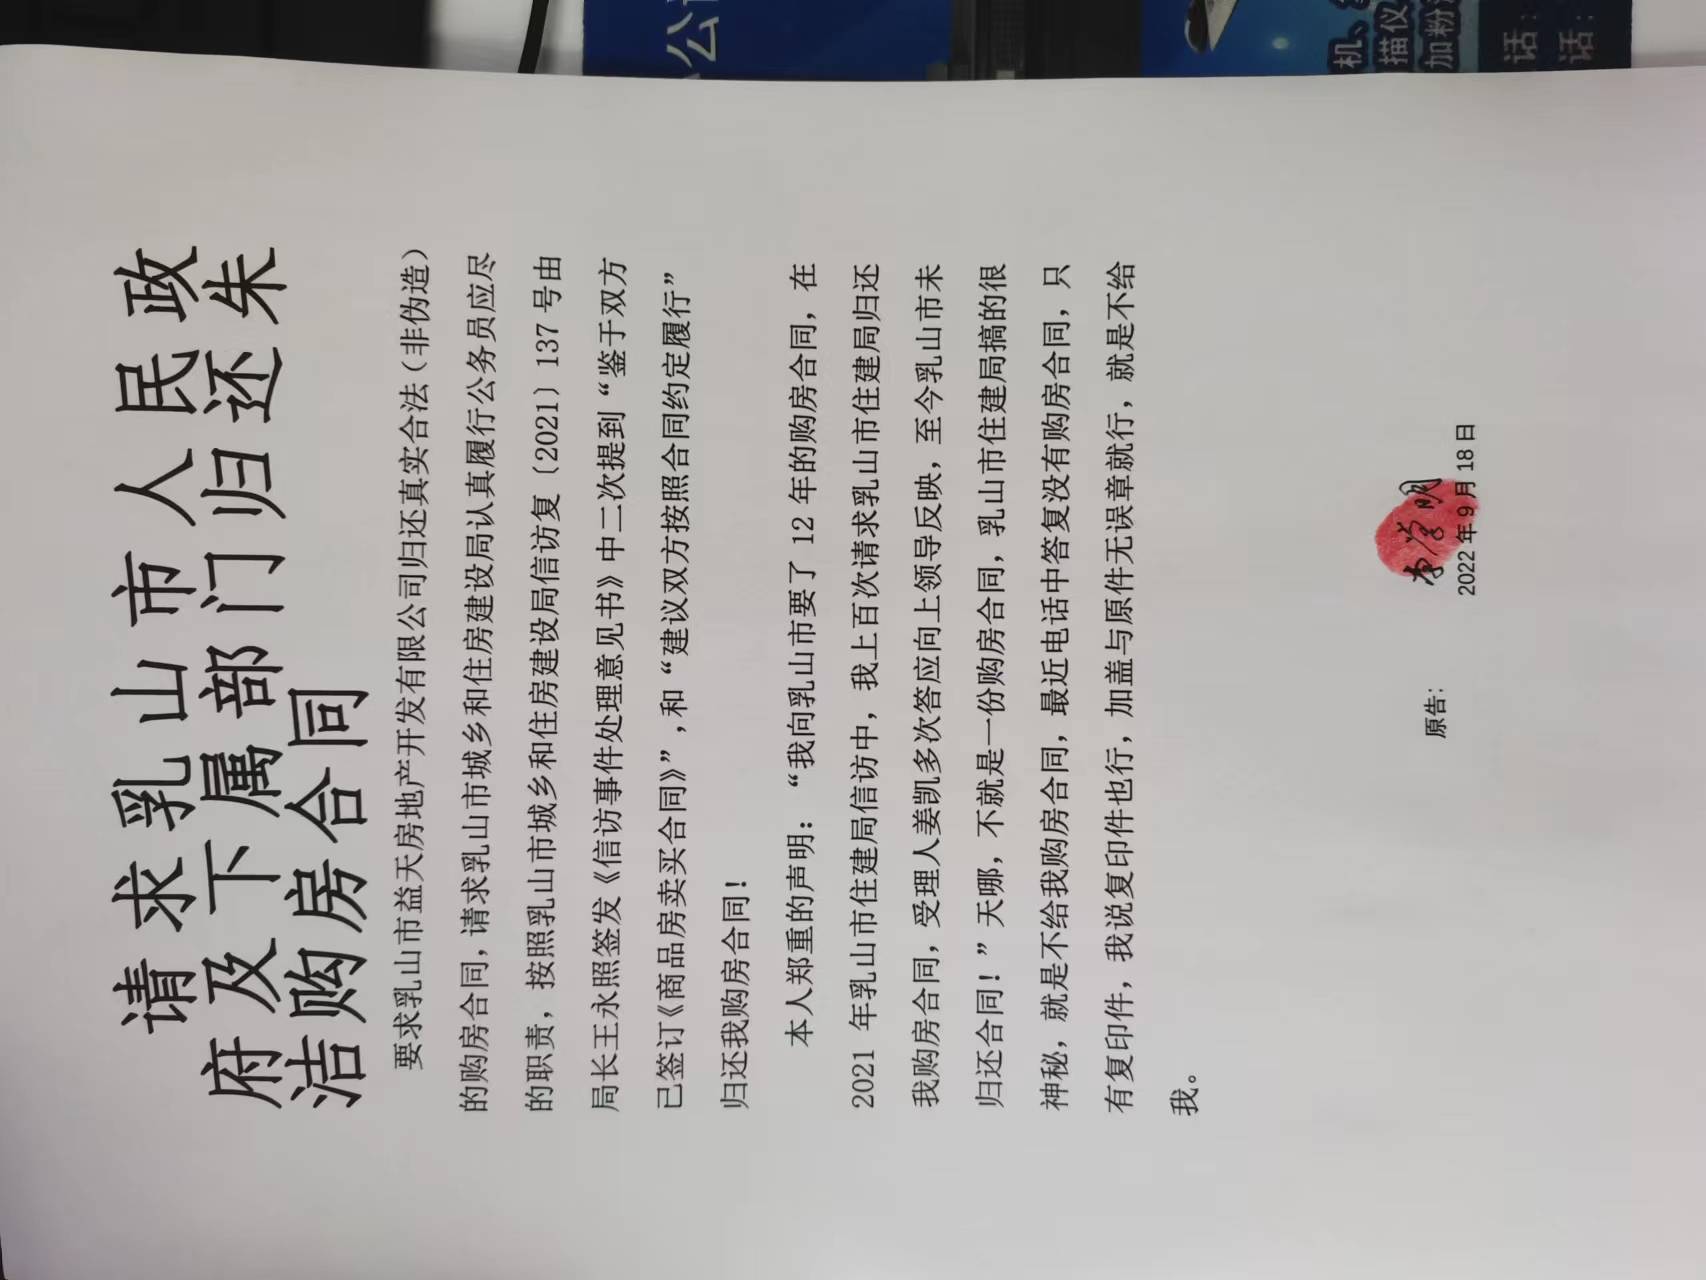 请求乳山市人民政
府及下属部门归还朱
洁购房合同
要求乳山市益天房地产开发有限公司归还真实合法（非伪造）
的购房合同，请求乳山市城乡和住房建设局认真履行公务员应尽
的职责，按照乳山市城乡和住房建设局信访复〔2021〕137 号由
局长王永照签发《信访事件处理意见书》中二次提到“鉴于双方
已签订《商品房卖买合同》”，和“建议双方按照合同约定履行”
归还我购房合同！
本人郑重的声明：“我向乳山市要了 12 年的购房合同，在
2021 年乳山市住建局信访中，我上百次请求乳山市住建局归还
我购房合同，受理人姜凯多次答应向上领导反映，至今乳山市未
归还合同！”天哪，不就是一份购房合同，乳山市住建局搞的很
神秘，就是不给我购房合同，最近电话中答复没有购房合同，只
有复印件，我说复印件也行，加盖与原件无误章就行，就是不给
我。
原告：
2022 年 9 月 18 日
公
机、
描仪
加粉
话：
话：